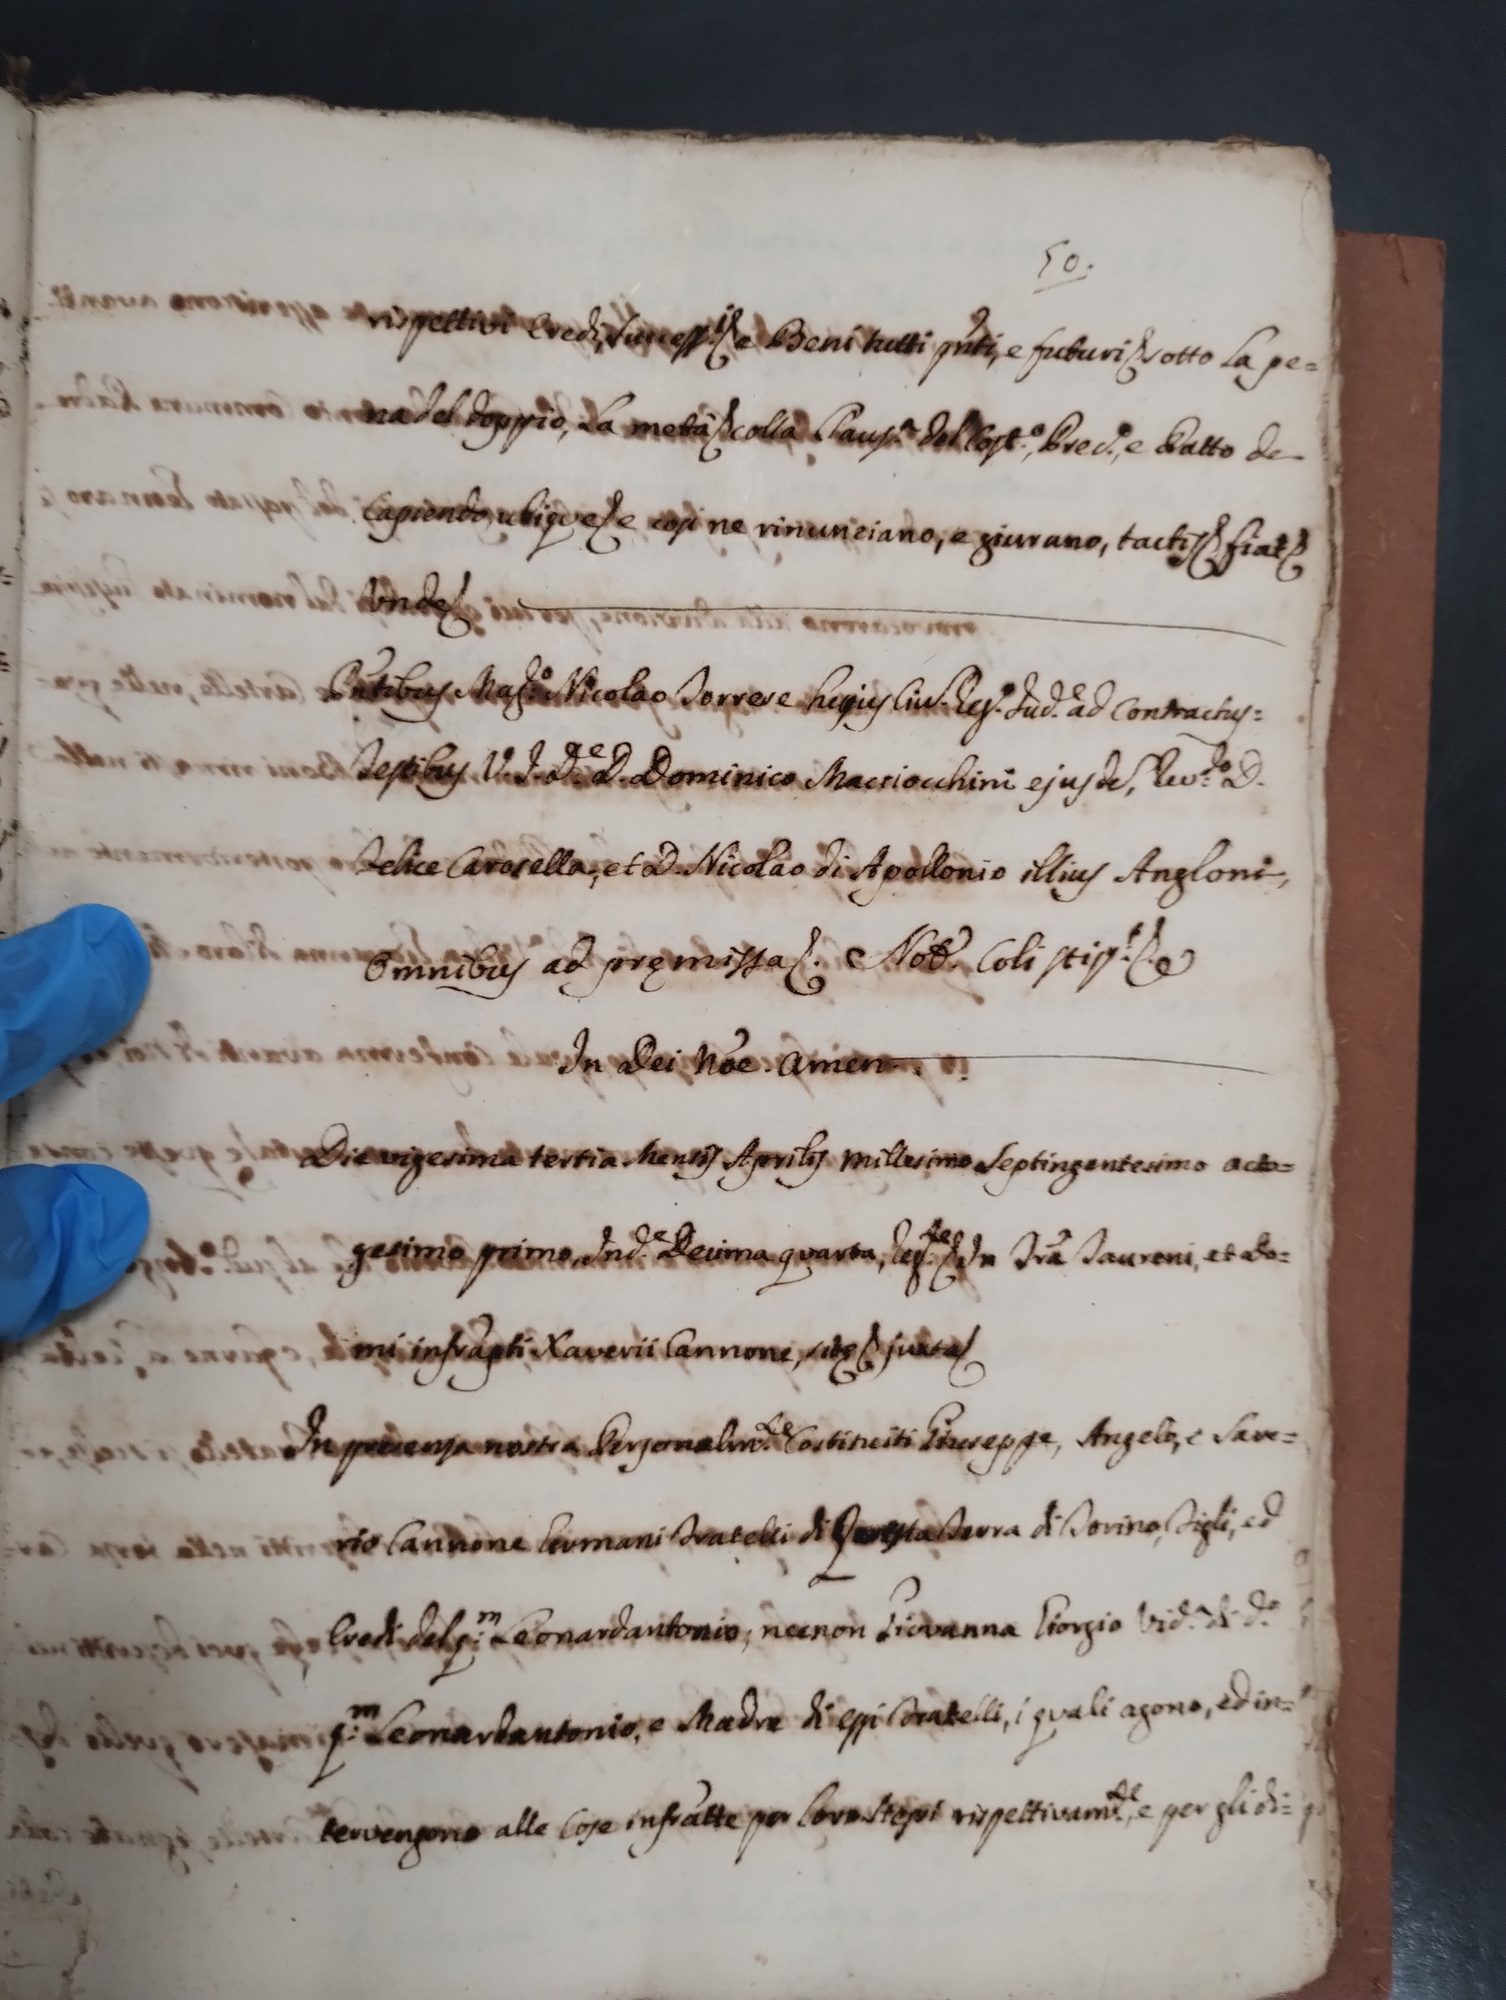 50.
rispettivi Eredi, Success.ri &c e Beni tutti pnti, e futuri &c sotto la pe=
na del doppio, la metà &c colla Claus.a del Cost.o, Prec.o, e Patto de
Capiendo, ubique &c e così ne rinunciano, e giurano, tactis &c fiat &c
Unde &c
Pntibus Mag.co Nicolao Torrese hujus Civ. Reg.o Jud.e ad Contractus=
Testibus U. J. D.re D. Dominico Macriocchini ejusde, Rev.do D.
Felice Carosella, et D. Nicolao di Apollonio illius Angloni,
Omnibus ad pręmissa &c. Not.r Coli stip.t &c.
In Dei Noe. Amen
Die vigesima tertia Mensis Aprilis Millesimo Septingentesimo octo=
gesimo primo, Ind.e Decima quarta, Reg.te &c In Tra Taureni, et Do=
mi infrapti Xaverii Cannone, sitę &c juxta &c
In presenza nostra Personalm.te Costituiti Giuseppe, Angelo, e Save=
rio Cannone Germani Fratelli di Questa Terra di Torino, Figli, ed
Eredi del q.m Leonardantonio, necnon Giovanna Giorgio Vid.a di d.o
q.m Leonardantonio, e Madre di essi Fratelli, i quali agono, ed in=
tervengono alle Cose infratte per loro stessi rispettivam.te, e per gli di=